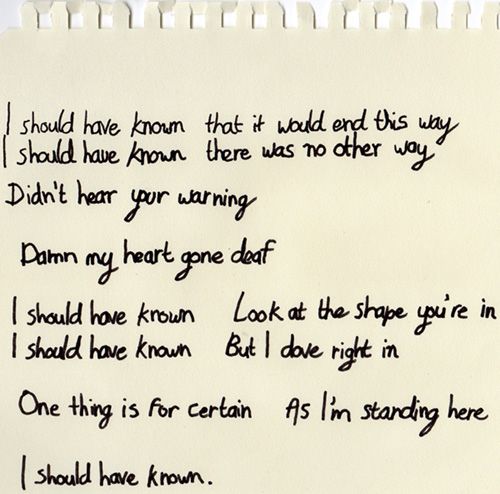 I should have known that it would end this way
I should have known there was no other way
Didn't hear your warning
Damn my heart gone deaf
I should have known Look at the shape you're in
I should have known But I dove right in
One thing is for certain As I'm standing here
I should have known.